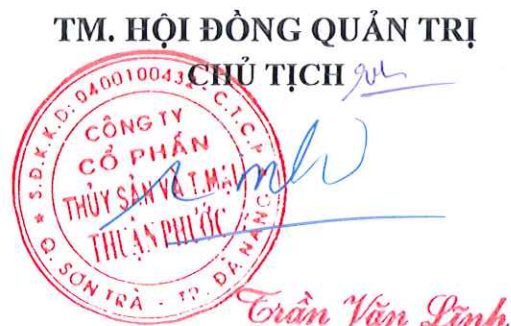 TM. HỘI ĐỒNG QUẢN TRỊ
CHỦ TỊCH
S.Đ.K.K.D: 0400100432 - C.T.C.P
CÔNG TY
CỔ PHẦN
THỦY SẢN VÀ T.MẠI
THUẬN PHƯỚC
Q. SƠN TRÀ - TP. ĐÀ NẴNG
Trần Văn Lĩnh